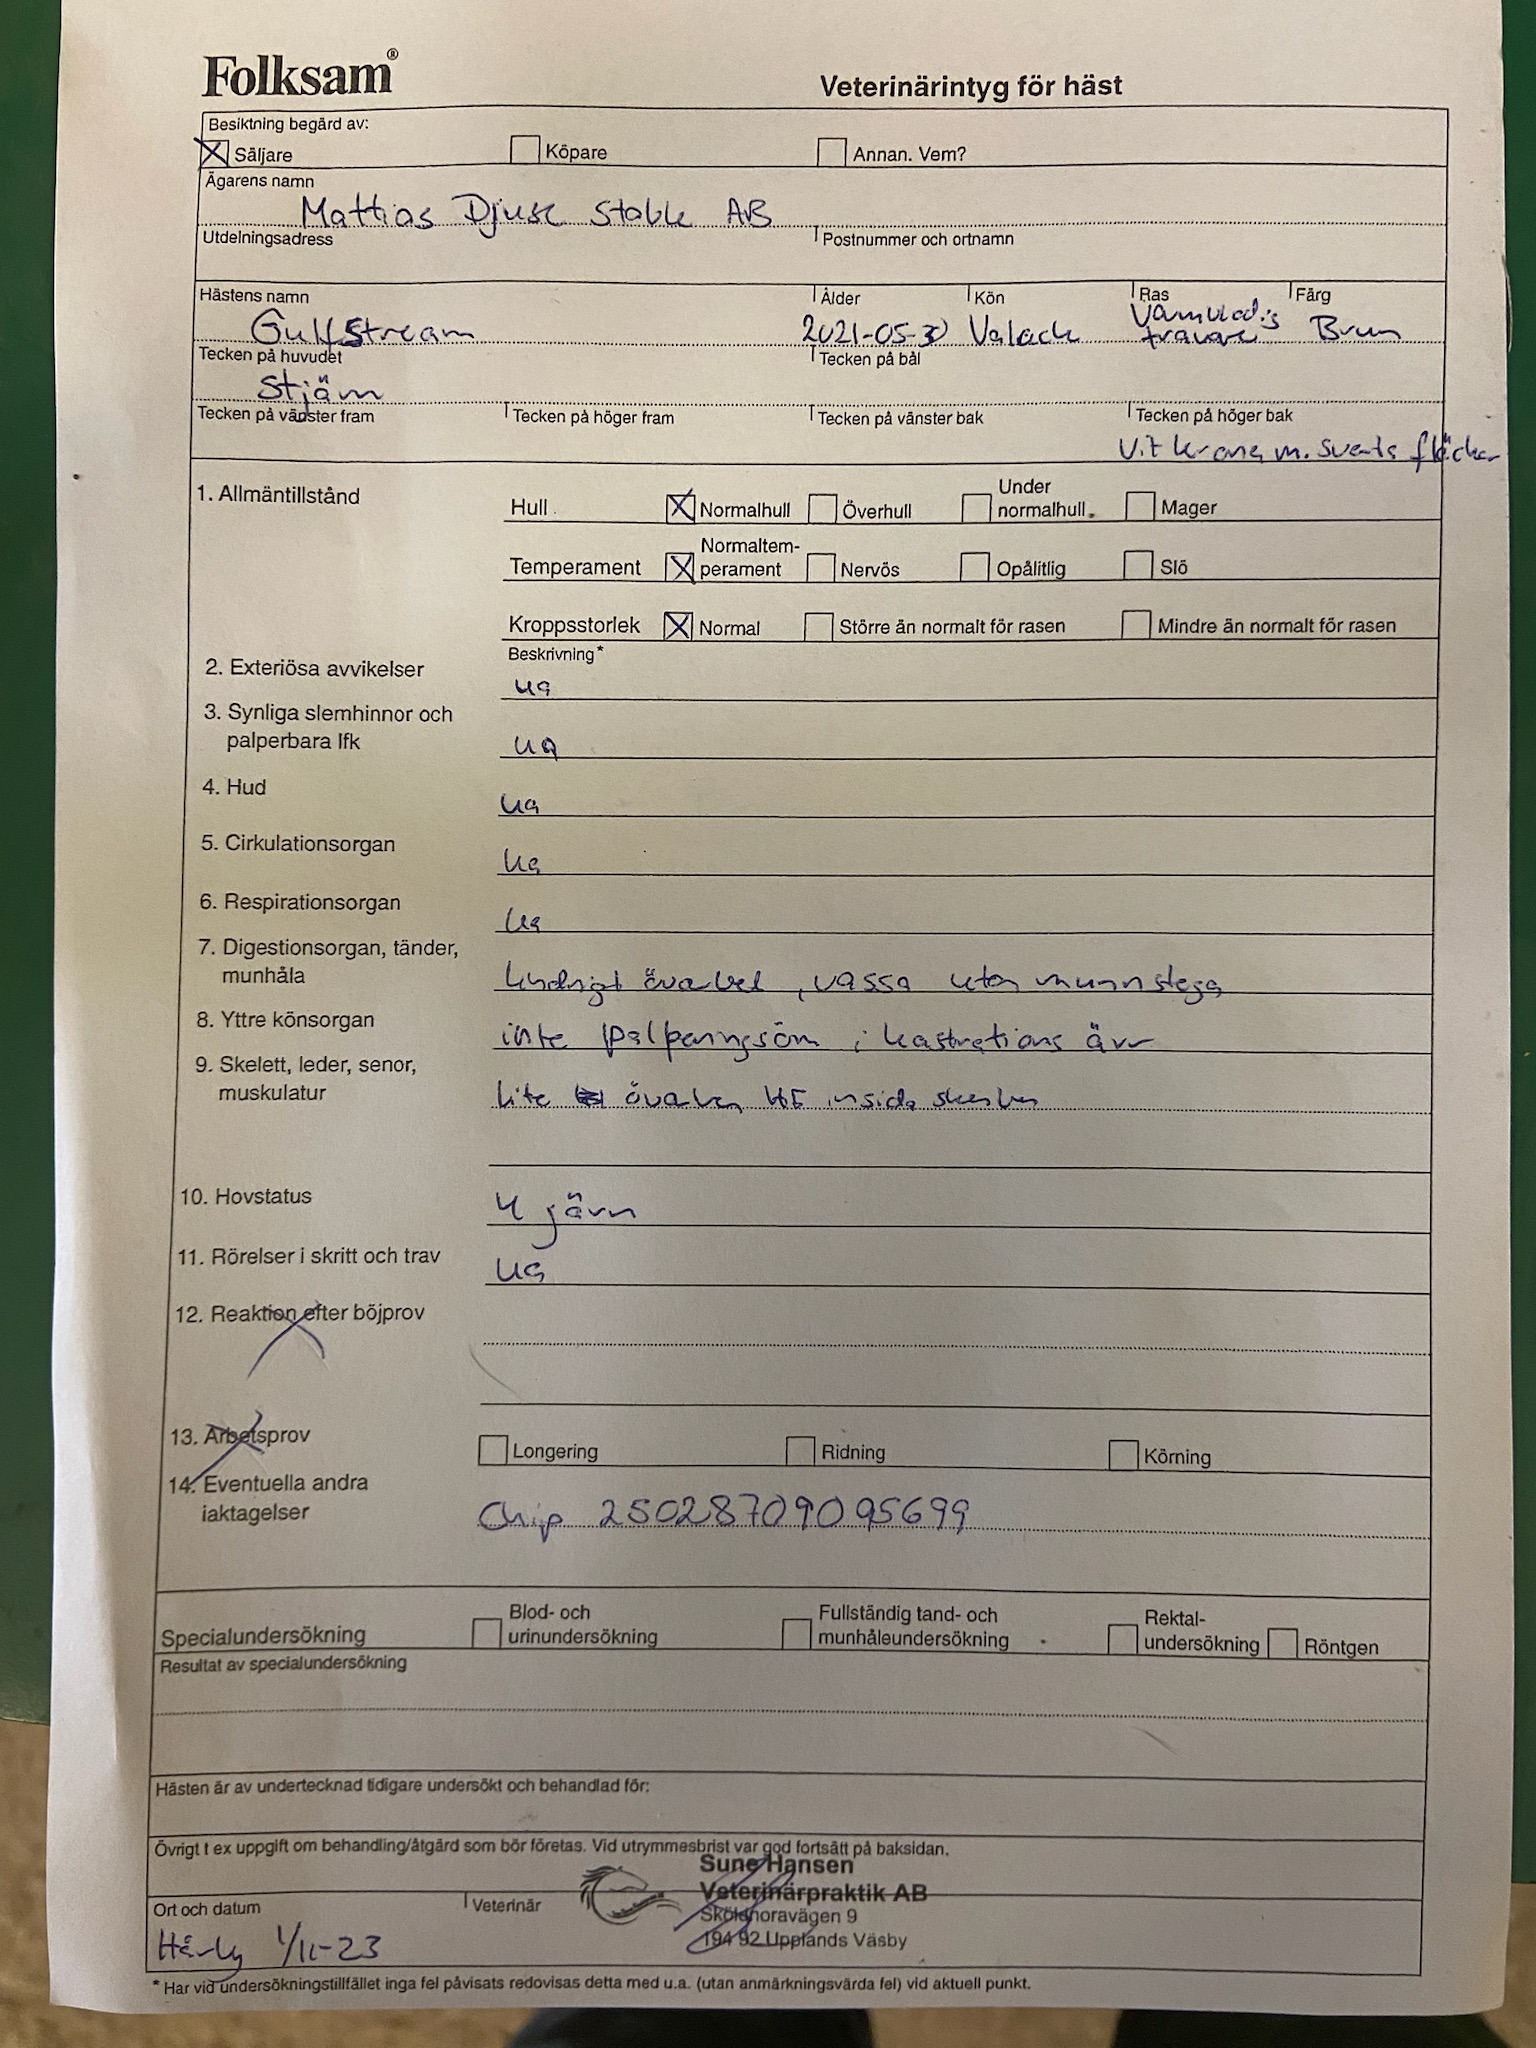 Folksam®
Veterinärintyg för häst
Besiktning begärd av:
Säljare Köpare Annan. Vem?
Ägarens namn
Mattias Djuse Stable AB
Utdelningsadress Postnummer och ortnamn
Hästens namn Ålder Kön Ras Färg
Gulfstream 2021-05-30 Valack Varmblodig travare Brun
Tecken på huvudet Tecken på bål
Stjärn
Tecken på vänster fram Tecken på höger fram Tecken på vänster bak Tecken på höger bak
Vit krona m. svarta fläckar
1. Allmäntillstånd
Hull Normalhull Överhull Under normalhull Mager
Temperament Normaltem-perament Nervös Opålitlig Slö
Kroppsstorlek Normal Större än normalt för rasen Mindre än normalt för rasen
Beskrivning*
2. Exteriösa avvikelser ua
3. Synliga slemhinnor och
palperbara lfk ua
4. Hud ua
5. Cirkulationsorgan ua
6. Respirationsorgan ua
7. Digestionsorgan, tänder,
munhåla lindrigt överbett, vassa utan
8. Yttre könsorgan inte palperingsöm i kastrations ärr
9. Skelett, leder, senor,
muskulatur lite insida
10. Hovstatus 4 järn
11. Rörelser i skritt och trav ua
12. Reaktion efter böjprov
13. Arbetsprov Longering Ridning Körning
14. Eventuella andra
iaktagelser Chip
Specialundersökning Blod- och urinundersökning Fullständig tand- och munhåleundersökning Rektal-undersökning Röntgen
Resultat av specialundersökning
Hästen är av undertecknad tidigare undersökt och behandlad för:
Övrigt t ex uppgift om behandling/åtgärd som bör företas. Vid utrymmesbrist var god fortsätt på baksidan.
Sune Hansen
Veterinärpraktik AB
Sköldnoravägen 9
194 92 Upplands Väsby
Ort och datum Veterinär
1/11-23
* Har vid undersökningstillfället inga fel påvisats redovisas detta med u.a. (utan anmärkningsvärda fel) vid aktuell punkt.